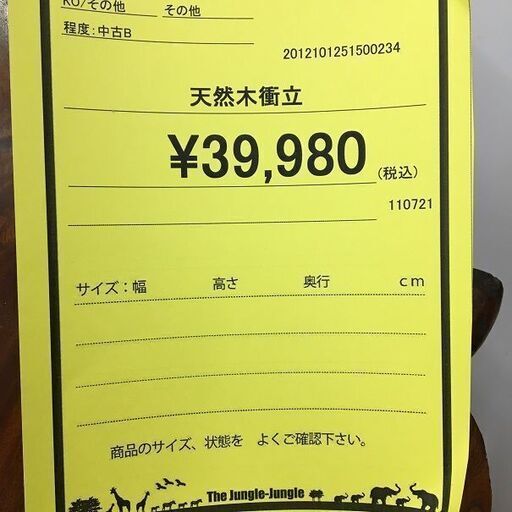 KO/その他 その他
程度:中古B
2012101251500234
天然木衝立
¥39,980 (税込)
110721
サイズ:幅 高さ 奥行 cm
商品のサイズ、状態を よくご確認下さい。
The Jungle-Jungle